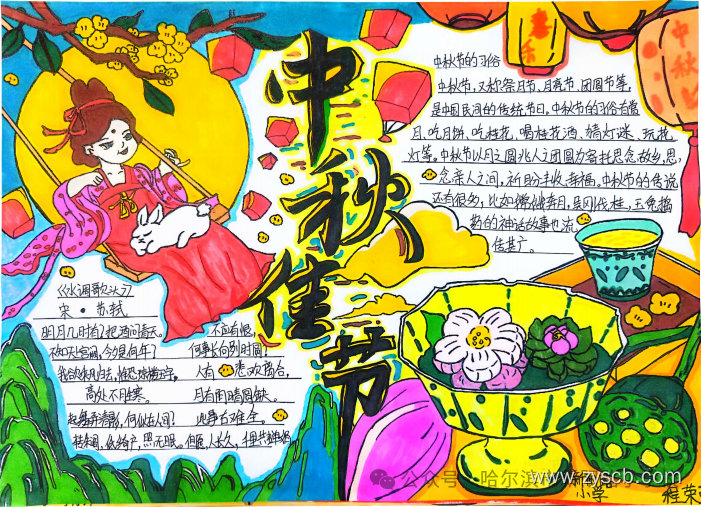 中秋佳节
中秋节的习俗
中秋节,又称祭月节、月亮节、团圆节等,
是中国民间的传统节日,中秋节的习俗有赏
月、吃月饼、吃桂花、喝桂花酒、猜灯谜、玩花
灯等。中秋节以月之圆兆人之团圆为寄托思念故乡,思
念亲人之间,祈盼丰收、幸福。中秋节的传说
还有很多,比如嫦娥奔月,吴刚伐桂,玉兔捣
药的神话故事也流
传甚广。
《水调歌头》
宋·苏轼
明月几时有?把酒问青天。
不知天宫阙,今夕是何年?
我欲乘风归去,惟恐琼楼玉宇,
高处不胜寒。
起舞弄清影,何似在人间?
转朱阁,低绮户,照无眠。
不应有恨,
何事长向别时圆?
人有悲欢离合,
月有阴晴圆缺。
此事古难全。
但愿人长久,千里共婵娟
中秋
公众号·哈尔滨市
小学
程荣
www.zyscb.com